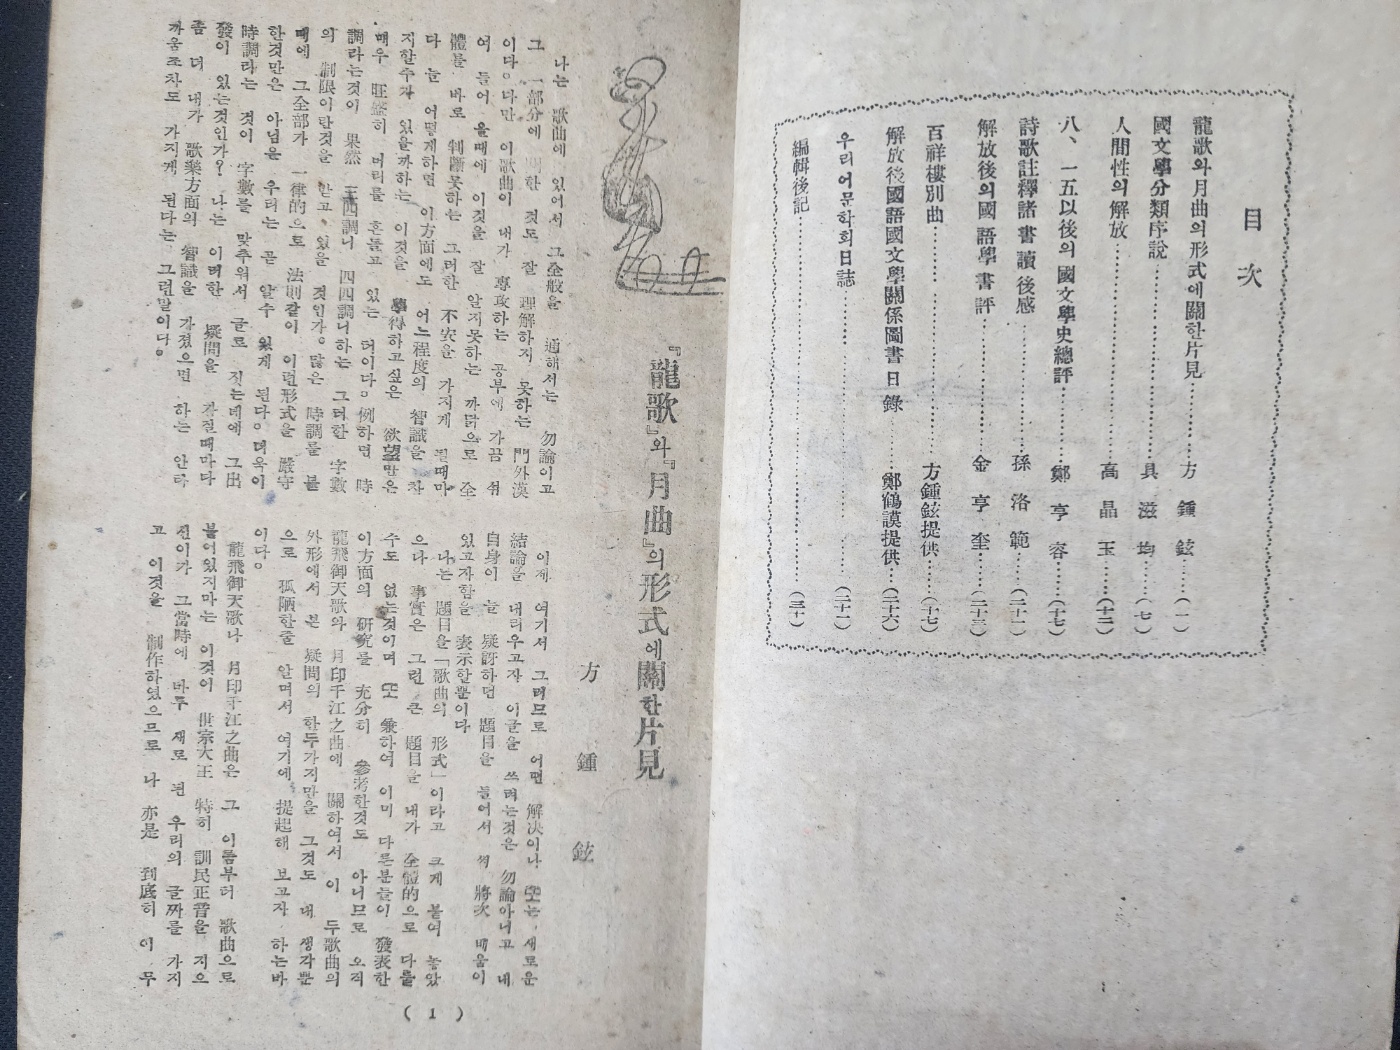 目次
龍歌와月曲의形式에關한片見……方鍾鉉……(一)
國文學分類序說……具滋均……(七)
人間性의解放……高晶玉……(十二)
八、一五以後의國文學史總評……鄭亨容……(十七)
詩歌註釋諸書讀後感……孫洛範……(二十一)
解放後의國語學書評……金亨奎……(二十三)
百祥樓別曲……方鍾鉉提供……(十七)
解放後國語國文學關係圖書目錄……鄭鶴謨提供……(二十六)
우리어문학회日誌……(二十一)
編輯後記……(三十)
『龍歌』와『月曲』의形式에關한片見
方鍾鉉
나는 歌曲에 있어서 그全般을 通해서는 勿論이고
그 一部分에 한 것도 잘 理解하지 못하는 門外漢
이다。다만 이歌曲이 내가 專攻하는 공부에 가끔 쉬
여 들어 올때에 이것을 잘 알지못하는 까닭으로 全
體를 바로 判斷못하는 그러한 不安을 가지게 될때마
다 늘 어떻게하면 이方面에도 어느程度의 智識을 차
지할수가 있을까하는 이것을 學得하고싶은 欲望만은
매우 旺盛히 머리를 흔들고 있는 터이다。例하면 時
調라는것이 果然 三四調니 四四調니하는 그러한 字數
의 制限이란것을 받고 있을 것인가。많은 時調를 볼
때에 그全部가 一律的으로 法則같이 이런形式을 嚴守
한것만은 아님을 우리는 곧 알수 있게 된다。더욱이
時調라는 것이 字數를 맞추워서 글로 짓는데에 그出
發이 있는것인가? 나는 이러한 疑問을 가질때마다
좀 더 내가 歌樂方面의 智識을 가졌으면 하는 안타
까움조차도 가지게 된다는 그런말이다。
이제 여기서 그러므로 어떤 解决이나 또는 새로운
結論을 내리우고자 이글을 쓰려는것은 勿論아니고 내
自身이 늘 疑訝하던 題目을 들어서 써 將次 배움이
있고자함을 表示할뿐이다
나는 題目을「歌曲의 形式」이라고 크게 붙여 놓았
으나 事實은 그런 큰 題目을 내가 全體的으로 다룰
수도 없는것이며 또 兼하여 이미 다른분들이 發表한
이方面의 硏究를 充分히 參考한것도 아니므로 오직
龍飛御天歌와 月印千江之曲에 關하여서 이 두歌曲의
外形에서 본 疑問의 한두가지만을 그것도 내 생각뿐
으로 孤陋한줄 안며서 여기에 提起해 보고자 하는바
이다。
龍飛御天歌나 月印千江之曲은 그 이름부터 歌曲으로
불어있지마는 이것이 世宗大王 特히 訓民正音을 지으
신이가 그當時에 바루 새로 된 우리의 글짜를 가지
고 이것을 制作하였으므로 나 亦是 到底히 이 무
( 1 )